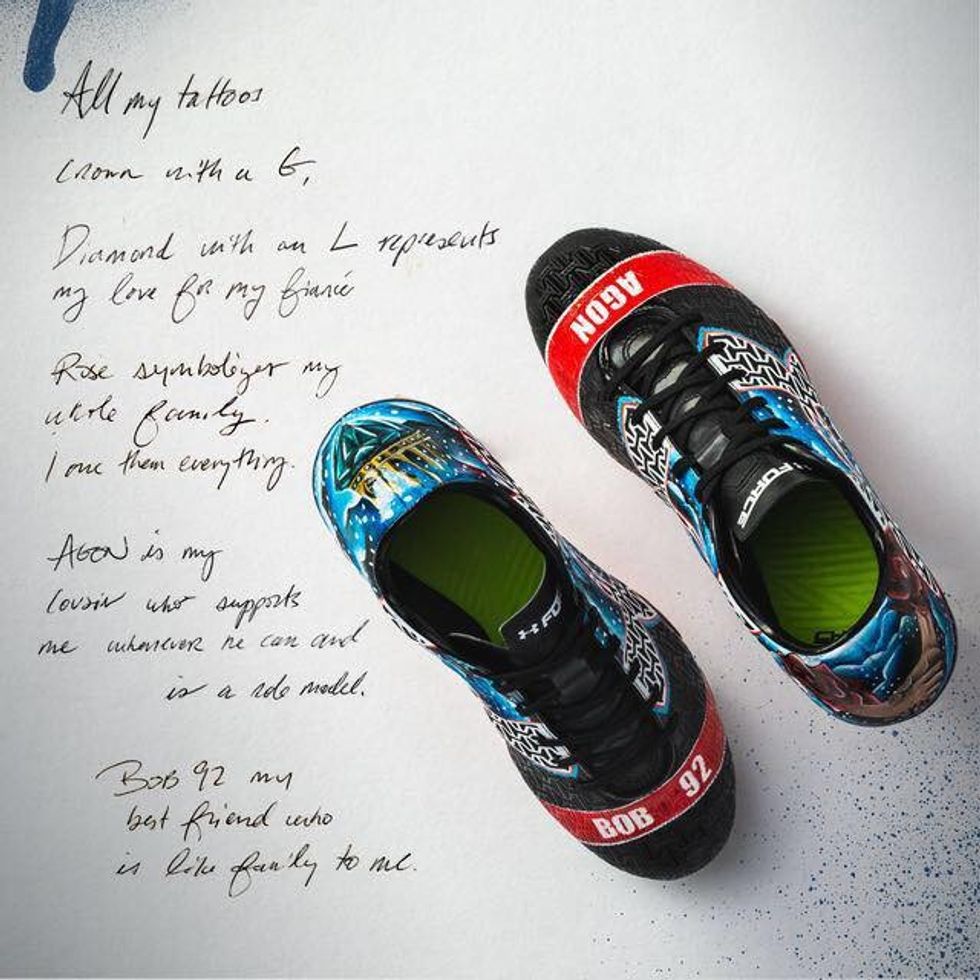 All my tattoos
Crown with a G,
Diamond with an L represents
my love for my fiancé
Rose symbolizes my
whole family.
I owe them everything.
AGON is my
cousin who supports
me whenever he can and
is a role model.
BOB 92 my
best friend who
is like family to me.
AGON
FORCE
FO
BOB 92